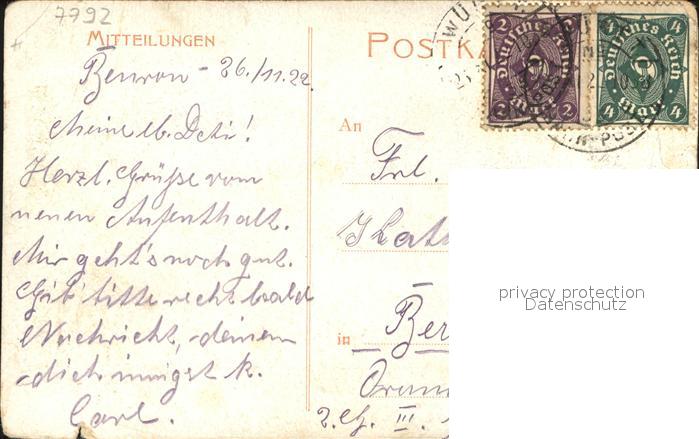 7792
MITTEILUNGEN
Beuron - 26./11.22
Meine lb. Deti!
Herzl. Grüße vom
neuen Aufenthalt.
Mir geht's noch gut.
Gib bitte recht bald
Nachricht, deinem
dich innigst k.
Carl.
POSTKA
2 2
Deutsches Reich
Mark
2 2
4 4
Deutsches Reich
Mark
4 4
An
Frl.
Kat
in
Ber
Oran
2. Eg. III.
privacy protection
Datenschutz